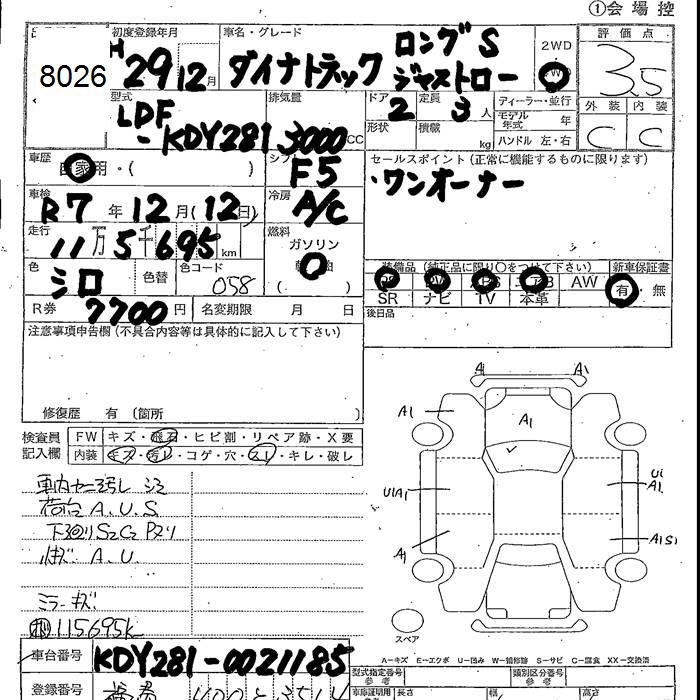 ①会場控
8026
初度登録年月
H 29 12月
車名・グレード
ロングS
ダイナトラック ジャストロー
2WD
評価点
3.5
外装 内装
C C
型式
LDF
-KDY281
排気量
3000 CC
ドア 定員
2 3 人
形状 積載
kg
ディーラー・並行
モデル年式 年
ハンドル 左・右
車歴
自家用・( )
シフト
F5
セールスポイント(正常に機能するものに限ります)
・ワンオーナー
車検
R7年12月(12日)
冷房
A/C
走行
11万5千695km
燃料
ガソリン
( )
色
シロ
色替
色コード
058
装備品(純正品に限り○をつけて下さい)
PS PW ABS エアB AW
SR ナビ TV 本革
新車保証書
有・無
R券 7700円
名変期限 月 日
後日品
注意事項申告欄(不具合内容等は具体的に記入して下さい)
修復歴 有 (箇所 )
検査員
記入欄
FW キズ・飛石・ヒビ割・リペア跡・X要
内装 キズ・汚レ・コゲ・穴・スレ・キレ・破レ
車内ヤニ汚レ シミ
荷台 A.U.S
下廻りS2C2 Pヌリ
A.U
ミラーキズ
115695k
A1 A1
A1
A1
U1A1
U1
A1
A1
A1S1
スペア
A-キズ E-エクボ U-凹み W-補修跡 S-サビ C-腐食 XX-交換済
車台番号 KDY281-0021185
登録番号
型式指定番号
参考
類別区分番号
参考
長さ
幅
高さ